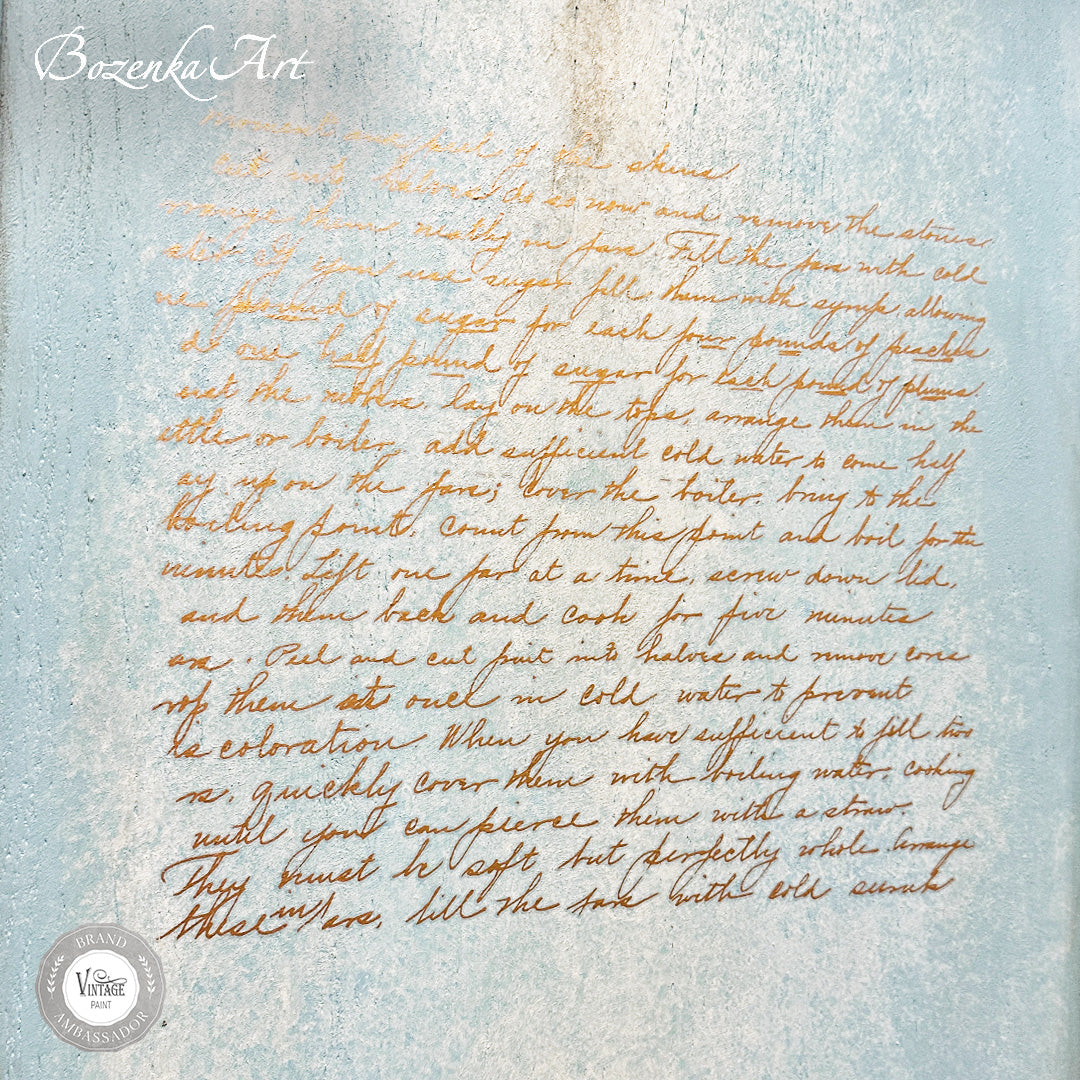 Bozenka Art
moment and peel of the skins
cut into halves, do so now and remove the stones
rrange them neatly in jars. Fill the jars with cold
If you use sugar fill them with syrup allowing
ne pound of sugar for each four pounds of peaches
d one half pound of sugar for each pound of plums.
ust the rubbers, lay on the tops, arrange them in the
ettle or boiler, add sufficient cold water to come half
ay up on the jars; cover the boiler, bring to the
boiling point, count from this point and boil for
minutes. Lift one jar at a time, screw down lid,
and them back and cook for five minutes
ars. Peel and cut fruit into halves and remove cores
rop them at once in cold water to prevent
is coloration. When you have sufficient to fill two
rs, quickly cover them with boiling water, cooking
until you can pierce them with a straw.
They must be soft but perfectly whole. Arrange
these in jars, fill the jars with cold
BRAND
VINTAGE
PAINT
AMBASSADOR